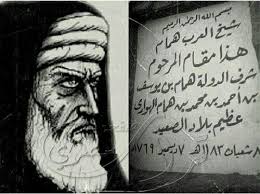 بسم الله الرحمن الرحيم
شيخ العرب همام
هذا مقام المرحوم
شرف الدولة همام بن يوسف
بن أحمد بن محمد بن همام الهوارى
عظيم بلاد الصعيد
٨ شعبان ١١٨٣هـ ٧ ديسمبر ١٧٦٩